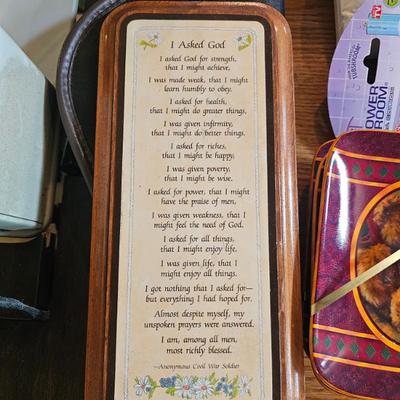 I Asked God
I asked God for strength,
that I might achieve,
I was made weak, that I might
learn humbly to obey.
I asked for health,
that I might do greater things,
I was given infirmity,
that I might do better things.
I asked for riches,
that I might be happy,
I was given poverty,
that I might be wise.
I asked for power, that I might
have the praise of men,
I was given weakness, that I
might feel the need of God.
I asked for all things,
that I might enjoy life.
I was given life, that I
might enjoy all things.
I got nothing that I asked for—
but everything I had hoped for.
Almost despite myself, my
unspoken prayers were answered.
I am, among all men,
most richly blessed.
—Anonymous Civil War Soldier
OWER
ROOM